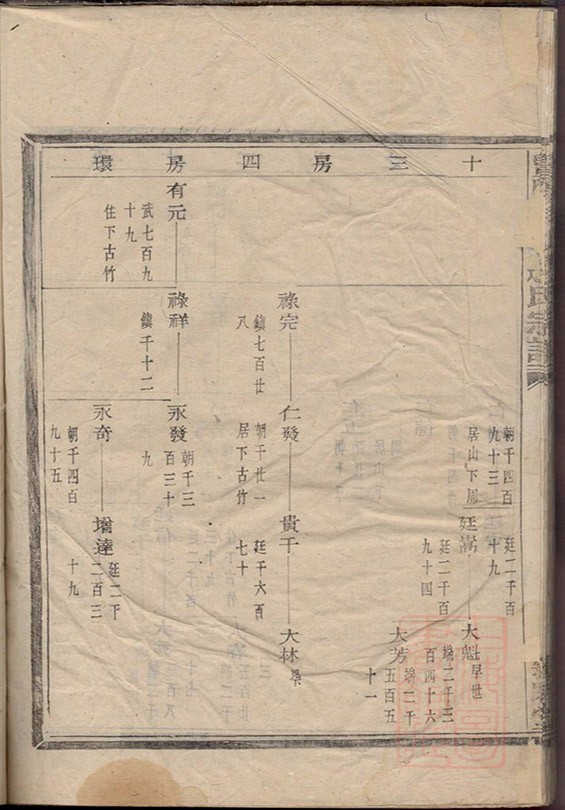 十三房四房環
朝千四百
九十三
居山下周
廷二千百
十九
廷嵩
廷二千百
九十四
大魁
早世
端二千三
百四十六
大芳
端二千
五百五
十一
祿完
鎮七百廿
八
仁發
朝千廿一
居下古竹
貴千
廷千六百
七十
大林
有元
武七百九
十九
住下古竹
祿祥
鎮千十二
永發
朝千三
百三十
九
永奇
朝千四百
九十五
增達
廷二千
二百三
十九
氏宗譜